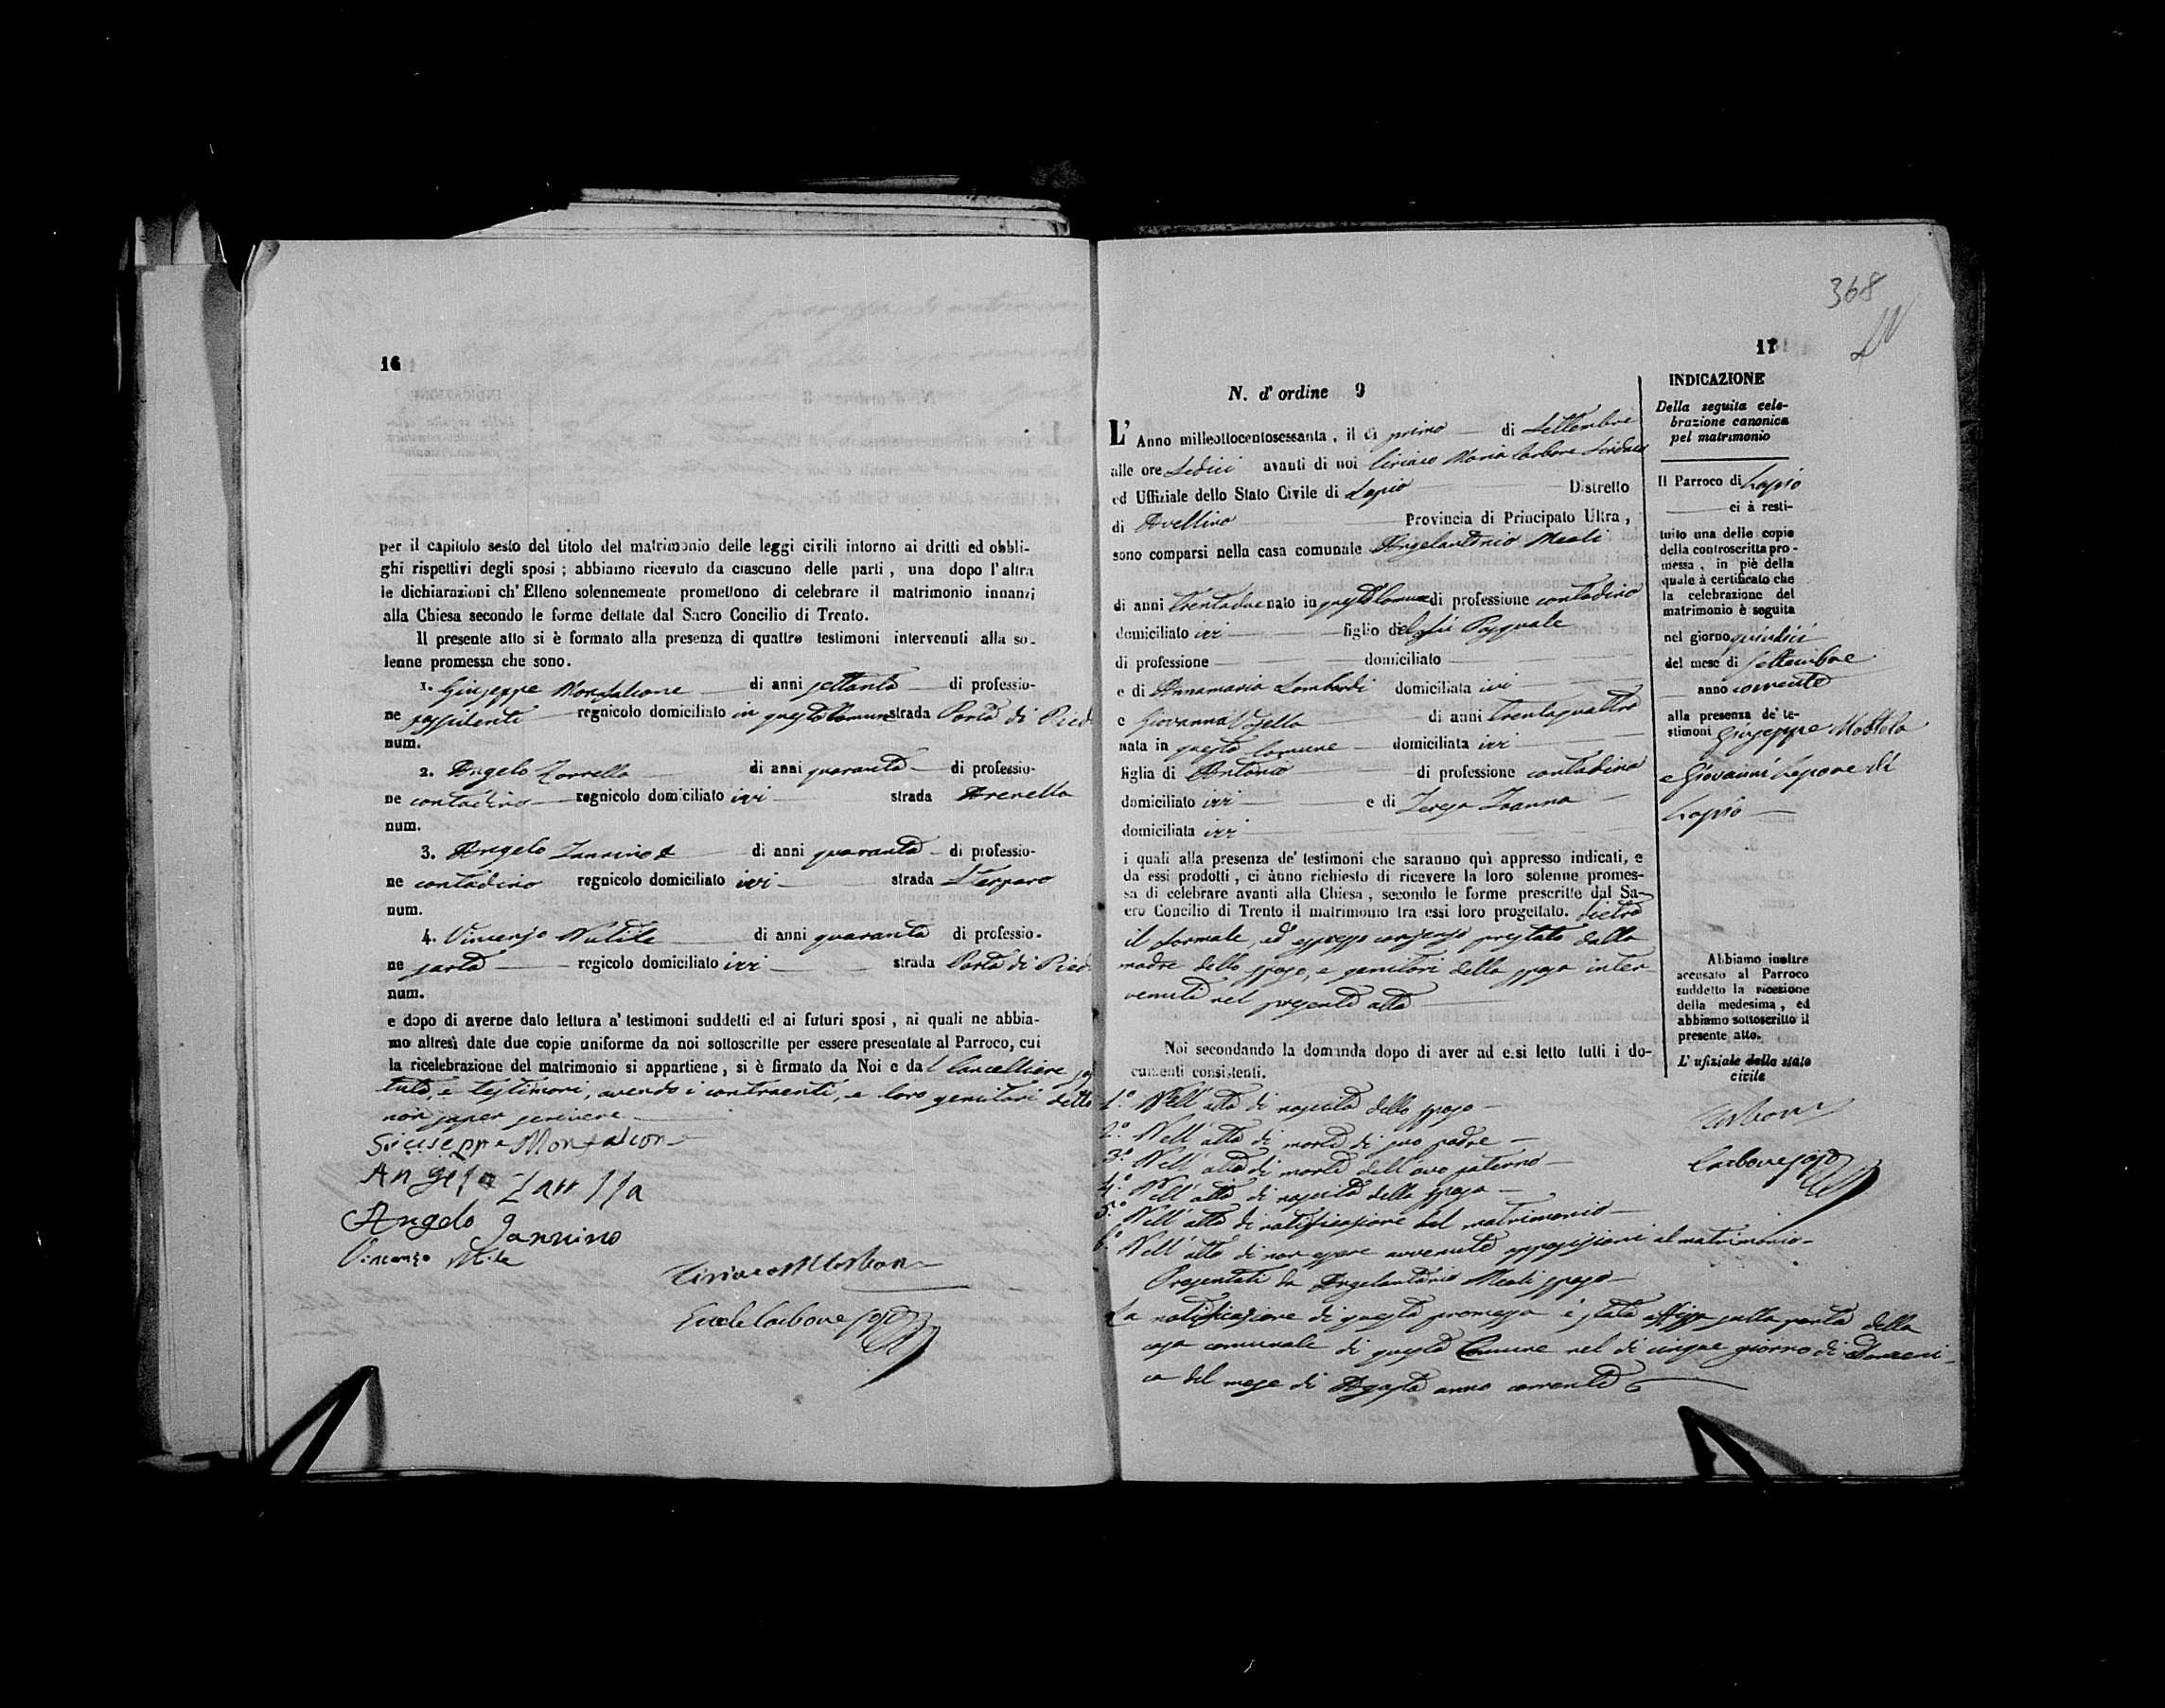 16
per il capitolo sesto del titolo del matrimonio delle leggi civili intorno ai dritti ed obbli-
ghi rispettivi degli sposi ; abbiamo ricevuto da ciascuno delle parti , una dopo l'altra
le dichiarazioni ch' Elleno solennemente promettono di celebrare il matrimonio innanzi
alla Chiesa secondo le forme dettate dal Sacro Concilio di Trento.
Il presente atto si è formato alla presenza di quattro testimoni intervenuti alla so-
lenne promessa che sono.
1. Giuseppe Monfalcone di anni settanta di professio-
ne possidente regnicolo domiciliato in questo Comune strada Porta di
num.
2. Angelo Zarrella di anni quaranta di professio-
ne contadino regnicolo domiciliato ivi strada Arenella
num.
3. Angelo Iannino di anni quaranta di professio-
ne contadino regnicolo domiciliato ivi strada
num.
4. Vincenzo di anni quaranta di professio.
ne sarto regicolo domiciliato ivi strada Porta di
num.
e dopo di averne dato lettura a' testimoni suddetti ed ai futuri sposi , ai quali ne abbia-
mo altresì date due copie uniforme da noi sottoscritte per essere presentate al Parroco, cui
la ricelebrazione del matrimonio si appartiene , si è firmato da Noi e dal Cancelliere
tuto, e testimoni, avendo i contraenti, e loro genitori detto
non saper scrivere
Giuseppe Monfalcone
Angelo
Angelo Iannino
Vincenzo
Ciriaco M Carbone
Carbone
368
17
N. d' ordine 9
L' Anno milleottocentosessanta , il dì primo di Settembre
alle ore sedici avanti di noi Ciriaco Maria Carbone Sindaco
ed Uffiziale dello Stato Civile di Lapio Distretto
di Avellino Provincia di Principato Ultra ,
sono comparsi nella casa comunale Angelantonio Meoli
di anni trentadue nato in questo Comune di professione contadino
domiciliato ivi figlio del fu Pasquale
di professione domiciliato
e di Annamaria Lombardi domiciliata ivi
e Giovanna di anni trentaquattro
nata in questo Comune domiciliata ivi
figlia di Antonio di professione contadino
domiciliato ivi e di Teresa Ioanna
domiciliata ivi
i quali alla presenza de' testimoni che saranno quì appresso indicati, e
da essi prodotti , ci ànno richiesto di ricevere la loro solenne promes-
sa di celebrare avanti alla Chiesa , secondo le forme prescritte dal Sa-
cro Concilio di Trento il matrimonio tra essi loro progettato. dietro
il formale, ed espresso consenso prestato dalla
madre dello sposo, e genitori della sposa inter
venuti nel presente atto
Noi secondando la domanda dopo di aver ad essi letto tutti i do-
cumenti consistenti.
1.° Nell'atto di nascita dello sposo
2.° Nell'atto di morte di suo padre
3.° Nell'atto di morte dell'avo paterno
4.° Nell'atto di nascita della sposa
5.° Nell'atto di notificazione del matrimonio
6.° Nell'atto di non essere avvenute opposizioni al matrimonio
Presentati da Angelantonio Meoli sposo
La notificazione di questa promessa è stata affissa sulla porta della
casa comunale di questo Comune nel dì cinque giorno di Domeni-
ca del mese di Agosto anno corrente
INDICAZIONE
Della seguita cele-
brazione canonica
pel matrimonio
Il Parroco di Lapio
ci à resti-
tuito una delle copie
della controscritta pro-
messa , in piè della
quale à certificato che
la celebrazione del
matrimonio è seguita
nel giorno quindici
del mese di Settembre
anno corrente
alla presenza de' te-
stimoni Giuseppe
e Giovanni Lepore di
Lapio
Abbiamo inoltre
accusato al Parroco
suddetto la ricezione
della medesima , ed
abbiamo sottoscritto il
presente atto.
L' ufiziale dello stato
civile
Carbone
Carbone